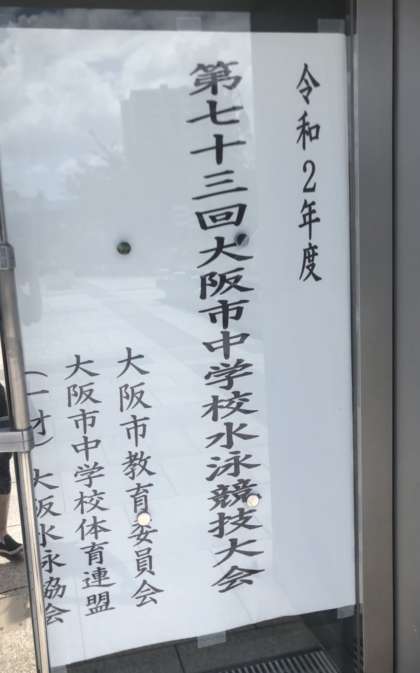 令和2年度
第七十三回大阪市中学校水泳競技大会
大阪市教育委員会
大阪市中学校体育連盟
(一才)大阪水泳協会